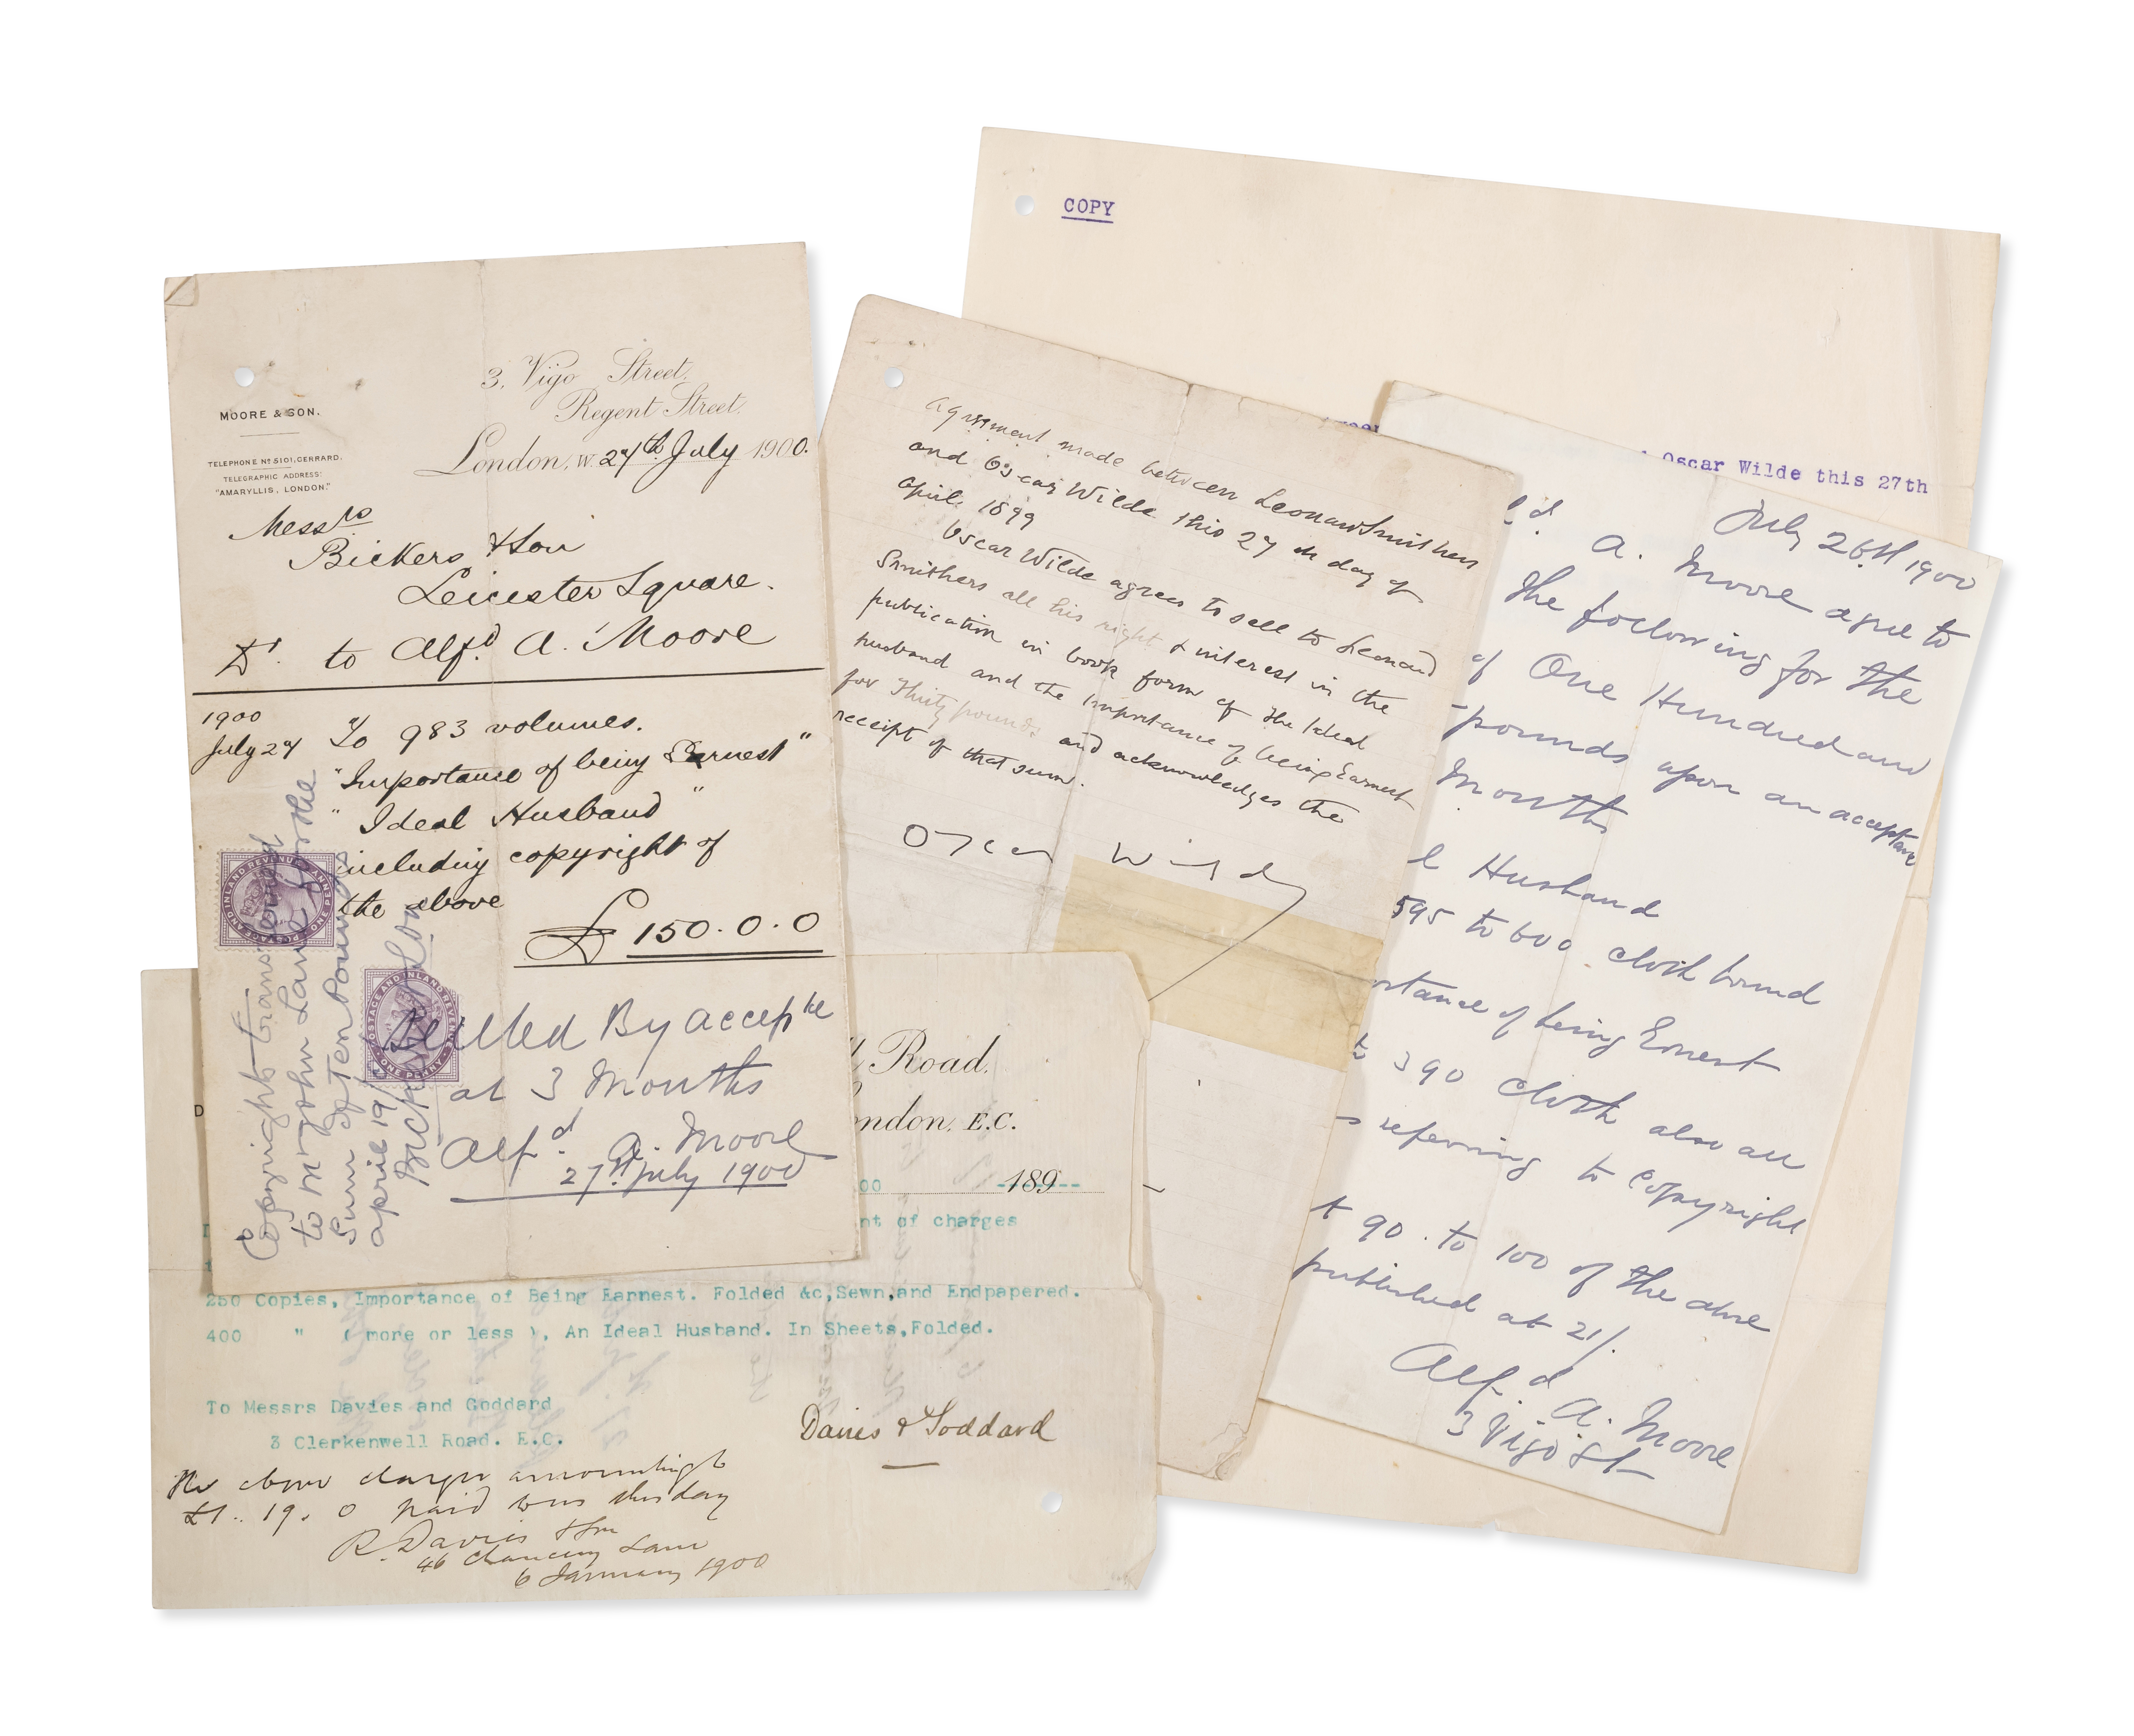 COPY
Oscar Wilde this 27th
MOORE & SON.
TELEPHONE Nº 5101, GERRARD.
TELEGRAPHIC ADDRESS:
"AMARYLLIS, LONDON."
3, Vigo Street,
Regent Street,
London, W. 27th July 1900.
Messrs
Bickers & Son
Leicester Square.
Dr. to Alfd. A. Moore
1900
July 27 To 983 volumes.
"Importance of being Earnest"
"Ideal Husband"
including copyright of
the above
£150.0.0
POSTAGE AND INLAND REVENUE
ONE PENNY
POSTAGE AND INLAND REVENUE
ONE PENNY
Settled By Acceptce
at 3 Months
Alfd. A. Moore
27th July 1900
Copyright transferred
to Mr John Lane for the
Sum of Ten Pounds
April 19
Bickers & Son
Agreement made between Leonard Smithers
and Oscar Wilde this 27th day of
April 1899
Oscar Wilde agrees to sell to Leonard
Smithers all his right & interest in the
publication in book form of The Ideal
husband and the Importance of being Earnest
for Thirty pounds and acknowledges the
receipt of that sum.
Oscar Wilde
July 26th 1900
A. Moore agree to
the following for the
of One Hundred and
pounds upon an acceptance
Months
l Husband
595 to 600 cloth bound
rtance of being Ernest
to 390 Cloth also all
s referring to Copyright
+ 90 to 100 of the above
published at 21/.
Alfd. A. Moore
3 Vigo St
Road.
ondon, E.C.
00 189
nt of charges
250 Copies, Importance of Being Earnest. Folded &c, Sewn, and Endpapered.
400 " ( more or less ), An Ideal Husband. In Sheets, Folded.
To Messrs Davies and Goddard
3 Clerkenwell Road. E.C.
Davies & Goddard
The above charges amounting to
£1.. 19. 0 paid was this day
R. Davis & Son
46 Chancery Lane
6 January 1900